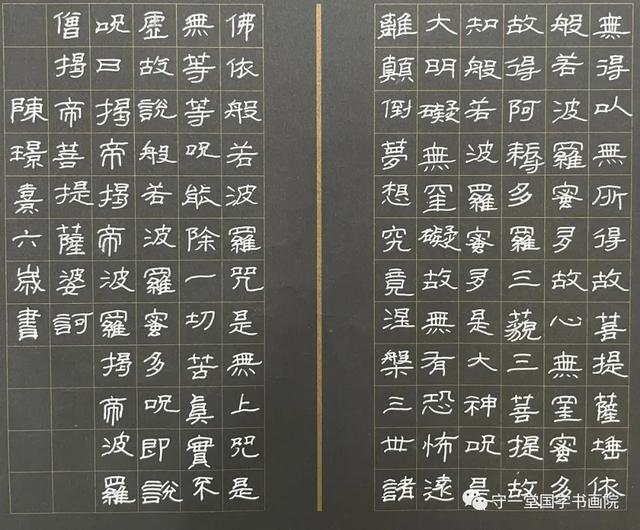 無得以無所得故菩提薩埵依
般若波羅蜜多故心無罣蜜多
故得阿耨多羅三藐三菩提故
知般若波羅蜜多是大神呪是
大明礙無罣礙故無有恐怖遠
離顛倒夢想究竟涅槃三世諸
佛依般若波羅咒是無上咒是
無等等呪能除一切苦真實不
虛故說般若波羅蜜多呪即說
呪曰揭帝揭帝波羅揭帝波羅
僧揭帝菩提薩婆訶
陳璟熹六歲書
守一堂国学书画院